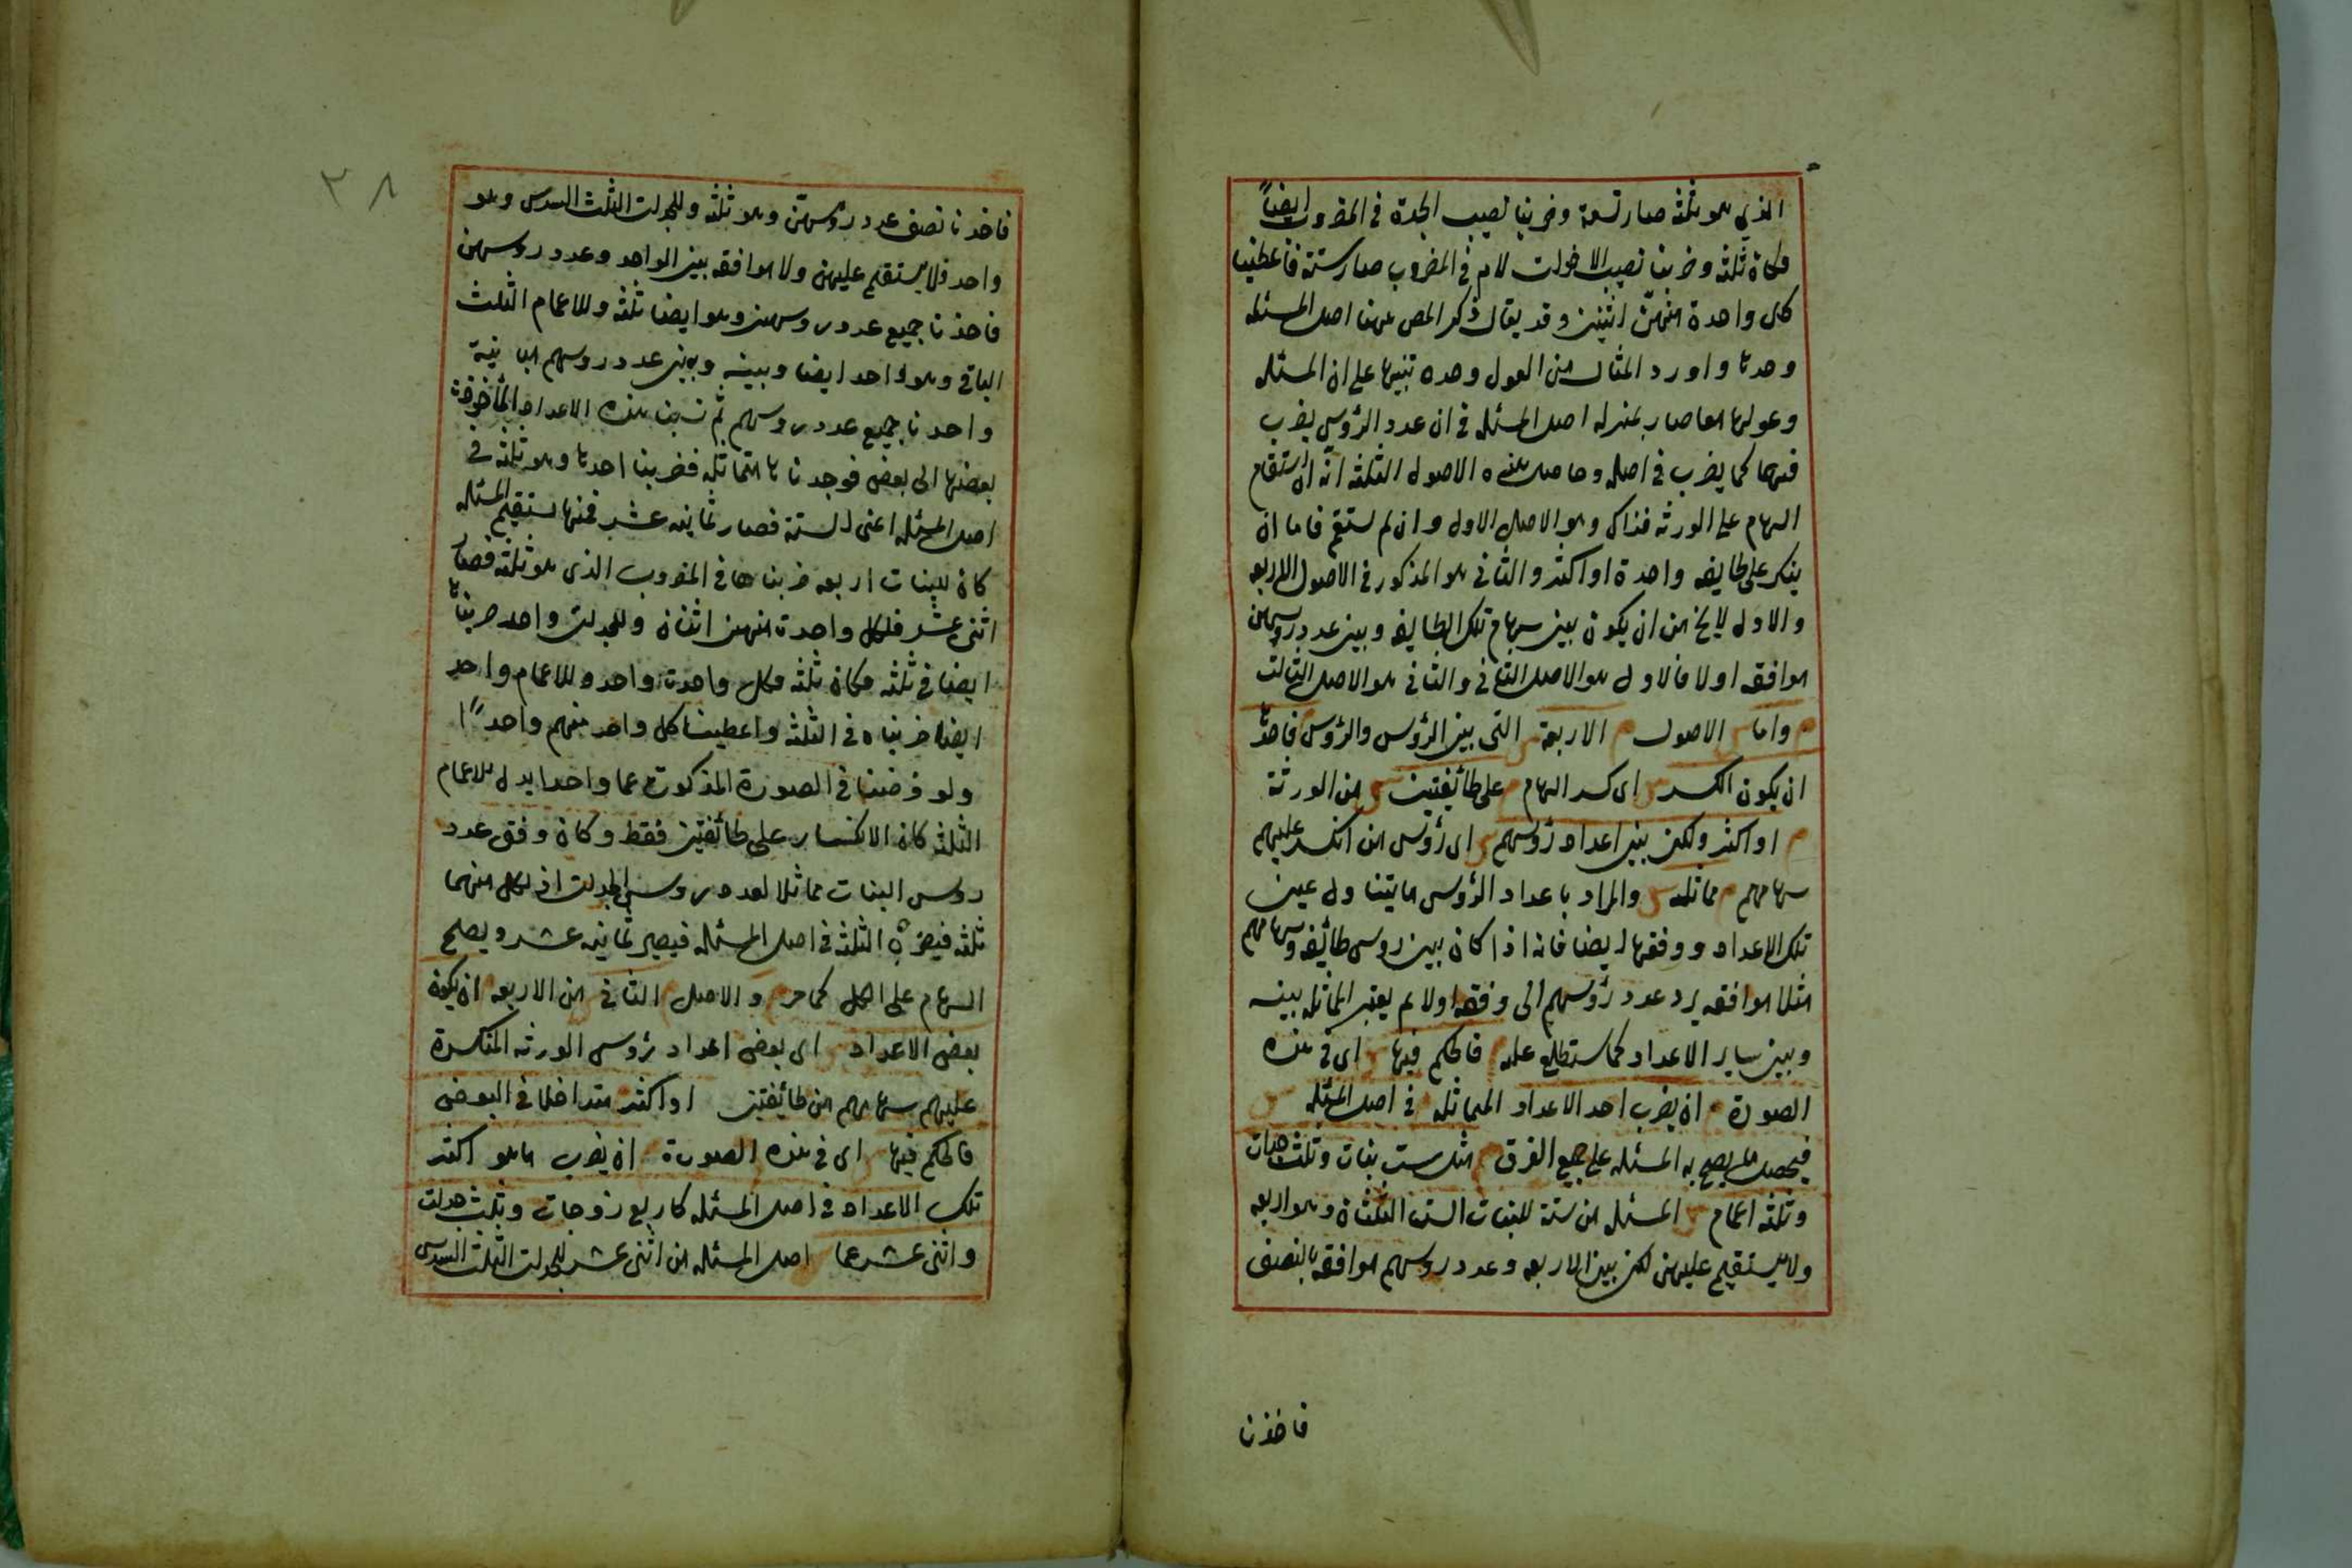 الذي هو ثلثة صار تسعة وضربنا نصيب الجدة في المضروب ايضاً
فكان ثلثة وضربنا نصيب الاخوات لام في المضروب صار ستة فاعطينا
كل واحدة منهنّ اثنين وقد يقال ذكر المص ههنا اصل المسئله
وحدها واورد المثال من العول وحده تنبيها على ان المسئله
وعولها معا صار بمنزله اصل المسئله في ان عدد الرؤس يضرب
فيهما كما يضرب في اصله وحاصل هذه الاصول الثلثة انه ان استقام
السهام على الورثه فذاك وهو الاصل الاول وان لم يستقم فاما ان
ينكسر على طايفه واحدة او اكثر والثاني هو المذكور في الاصول الاربعه
والاول لا يخ من ان يكون بين سهام تلك الطايفه وبين عدد روسهن
موافقه اولا فالاول هو الاصل الثاني والثاني هو الاصل الثالث
واما الاصول الاربعة التي بين الرؤس والرؤس فاحدها
ان يكون الكسر اي كسر السهام على طائفتين من الورثة
او اكثر ولكن بين اعداد رؤسهم اي رؤس من انكسر عليهم
سهامهم مماثله والمراد باعداد الرؤس ما يتناول عين
تلك الاعداد ووفقها ايضا فانه اذا كان بين روس طائفه وسهامهم
مثلا موافقه يرد عدد رؤسهم الى وفقه اولا ثم يعتبر المماثله بينه
وبين ساير الاعداد كما ستطلع عليه فالحكم فيها اي في هذه
الصورة ان يضرب احد الاعداد المماثله في اصل المسئله
فيحصل ما يصح به المسئله على جميع الفرق مثل ست بنات وثلث جدات
وثلثه اعمام المسئله من ستة للبنات الست الثلثان وهو اربعه
ولا يستقيم عليهن لكن بين الاربعه وعدد روسهم موافقه بالنصف
فاخذنا
٣٨
فاخذنا نصف عدد رؤسهنّ وهو ثلثه وللجدات الثلث السدس وهو
واحد فلا يستقيم عليهن ولا موافقه بين الواحد وعدد روسهن
فاخذنا جميع عدد روسهن وهو ايضا ثلثه وللاعمام الثلث
الباقي وهو واحد ايضا وبينه وبين عدد روسهم مباينة
واخذنا جميع عدد روسهم ثم نسبنا هذه الاعداد المأخوذة
بعضها الى بعض فوجدناها متماثله فضربنا احدها وهو ثلثه في
اصل المسئله اعني الستة فصار ثمانيه عشر فمنها يستقيم المسئله
كان للبنات اربعه ضربناها في المضروب الذي هو ثلثه فصار
اثني عشر فلكل واحدة منهن اثنان وللجدات واحد ضربناها
ايضا في ثلثه فكان ثلثه فكل واحدة واحد وللاعمام واحد
ايضا ضربناه في الثلثه واعطينا كل واحد منهم واحداً
ولو فرضنا في الصورة المذكورة عما واحدا بدل للاعمام
الثلثه كان الانكسار على طائفتين فقط وكان وفق عدد
روس البنات مماثلا لعدد روس الجدات اذ لكل منهما
ثلثه فيضرب الثلثه في اصل المسئله فيصير ثمانيه عشر ويصح
السهام على الكل كما مر والاصل الثاني من الاربعه ان يكون
بعض الاعداد اي بعض اعداد رؤس الورثه المنكسرة
عليهم سهامهم من طائفتين او اكثر متداخلا في البعض
فالحكم فيها اي في هذه الصورة ان يضرب ما هو اكثر
تلك الاعداد في اصل المسئله كاربع زوجات وثلث جدات
واثني عشر عما اصل المسئله من اثني عشر للجدات الثلث السدس